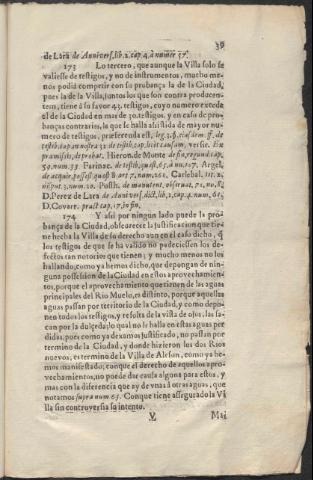 39
de Lara de Anivers, lib. 2. cap. 4. à numer 57.
173 Lo tercero, que aunque la Villa solo se
valiesse de testigos, y no de instrumentos, mucho me-
nos podia competir con su probança la de la Ciudad,
pues la de la Villa, juntos los que son contra producen-
tem, tiene à su favor 43. testigos, cuyo numero excede
al de la Ciudad en mas de 30. testigos. y en caso de pro-
banças contrarias, la que se halla assistida de mayor nu-
mero de testigos, præferenda est, leg. 3. §. eiusdem ff. de
testib. cap. in nostra 32 de testib. cap. licet causam, versic. Ex
præmissis, de probat. Hieron. de Monte de fin. regund. cap.
59. num. 33. Farinac. de testib. quæst. 65. à nu. 127. Angel.
de acquir. possess. quæst. 8. art. 7. num. 261. Carleval. tit. 2.
disput. 3. num. 20. Posth. de manutent. observat. 71. nu. 8.
D. Perez de Lara de Anivers. dict. lib. 2. cap. 4. num. 61.
D. Covarr. pract. cap. 17. in fin.
174 Y assi por ningun lado puede la pro-
bança de la Ciudad, obscurecer la justificacion que tie-
ne hecha la Villa de su derecho aun en el caso dicho, q̃
los testigos de que se ha valido no padeciessen los de-
fectos tan notorios que tienen; y mucho menos no los
hallando, como ya hemos dicho, que depongan de nin-
guna possession de la Ciudad en estos aprovechamien-
tos, porque el aprovechamiento que tienen de las aguas
principales del Rio Muelo, es distinto, porque aquellas
aguas passan por territorio de la Ciudad, y como depo-
nen todos los testigos, y resulta de la vista de ojos, las sa-
can por la dulçeda; lo qual no se halla en estas aguas per
didas, pues como ya dexamos justificado, no passan por
termino de la Ciudad, y donde hizieron los dos Rios
nuevos, es termino de la Villa de Aleson, como ya he-
mos manifestado; conque el derecho de aquellos apro-
vechamientos, no puede dar causa alguna para estos, y
mas con la diferencia que ay de vnas à otras aguas, que
notamos supra num. 63. Conque tiene assegurado la Vi
lla sin controversia su intento.
V Mas